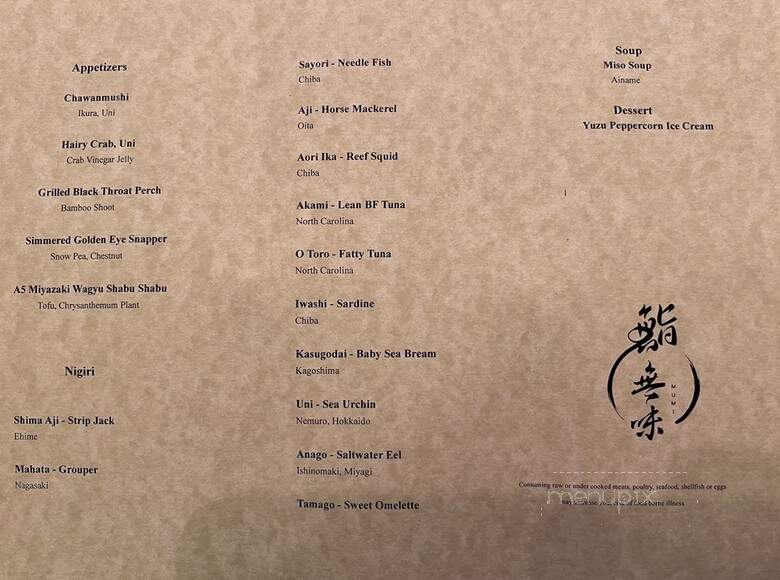 Appetizers
Chawanmushi
Ikura, Uni
Hairy Crab, Uni
Crab Vinegar Jelly
Grilled Black Throat Perch
Bamboo Shoot
Simmered Golden Eye Snapper
Snow Pea, Chestnut
A5 Miyazaki Wagyu Shabu Shabu
Tofu, Chrysanthemum Plant
Nigiri
Shima Aji - Strip Jack
Ehime
Mahata - Grouper
Nagasaki
Sayori - Needle Fish
Chiba
Aji - Horse Mackerel
Oita
Aori Ika - Reef Squid
Chiba
Akami - Lean BF Tuna
North Carolina
O Toro - Fatty Tuna
North Carolina
Iwashi - Sardine
Chiba
Kasugodai - Baby Sea Bream
Kagoshima
Uni - Sea Urchin
Nemuro, Hokkaido
Anago - Saltwater Eel
Ishinomaki, Miyagi
Tamago - Sweet Omelette
Soup
Miso Soup
Ainame
Dessert
Yuzu Peppercorn Ice Cream
鮨
無
味
MUMI
Consuming raw or under cooked meats, poultry, seafood, shellfish or eggs
may increase your risk of food borne illness
menupix